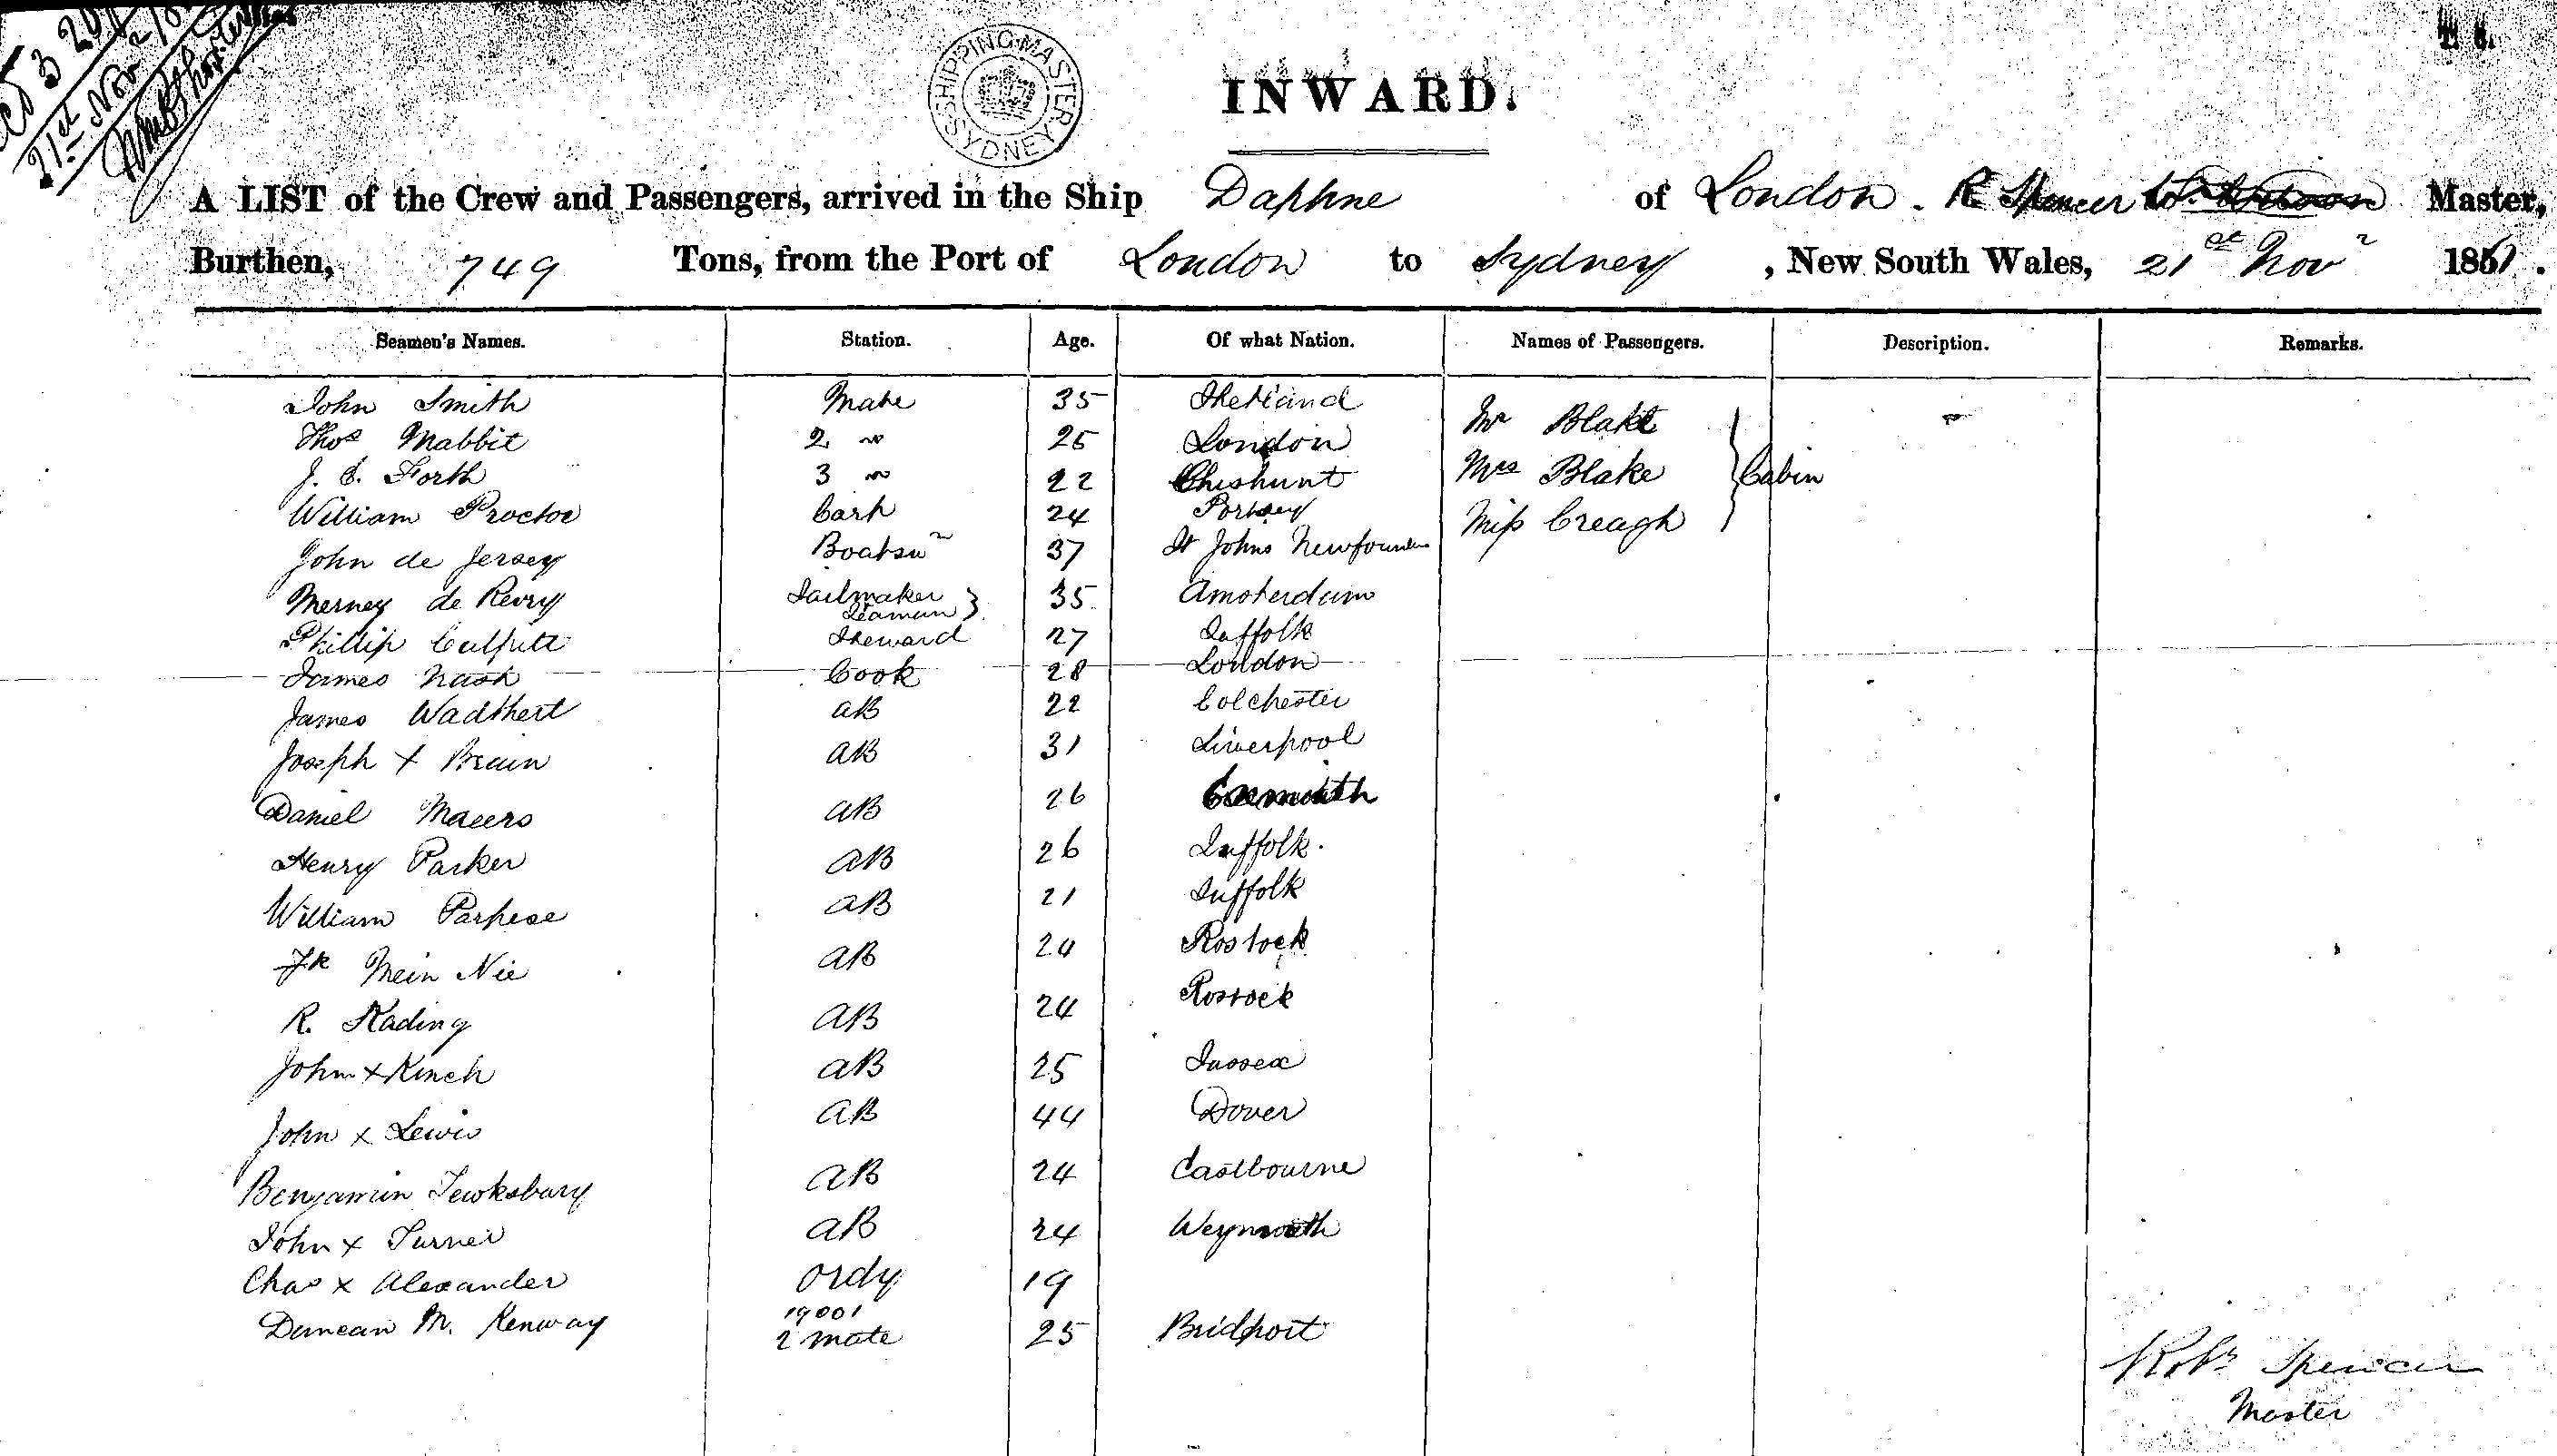 21st Nov
SHIPPING MASTER SYDNEY
INWARD.
A LIST of the Crew and Passengers, arrived in the Ship Daphne of London. R Spencer Master,
Burthen, 749 Tons, from the Port of London to Sydney, New South Wales, 21st Novr 1861.
Seamen's Names. Station. Age. Of what Nation. Names of Passengers. Description. Remarks.
John Smith Mate 35 Shetland Mr Blake
Thos Mabbit 2 " 25 London
J. E. Forth 3 " 22 Cheshunt Mrs Blake } Cabin
William Proctor Carp 24 Portsey Miss Creagh
John de Jersey Boatsn 37 St Johns Newfoun
de Sailmaker Seaman } 35 Amsterdam
Phillip Steward 27 Suffolk
James Nash Cook 28 London
James AB 22 Colchester
Joseph x AB 31 Liverpool
Daniel AB 26 Exmouth
Henry Parker AB 26 Suffolk.
William AB 21 Suffolk
Mein Nie AB 24 Rostock
R. Kading AB 24 Rostock
John x Kinch AB 25 Sussex
John x Lewis AB 44 Dover
Benjamin Tewksbury AB 24 Eastbourne
John x Turner AB 24 Weymouth
Chas x Alexander Ordy 19
Duncan M. Kenway 19001 2 mate 25 Bridport
Robt Spencer
Master